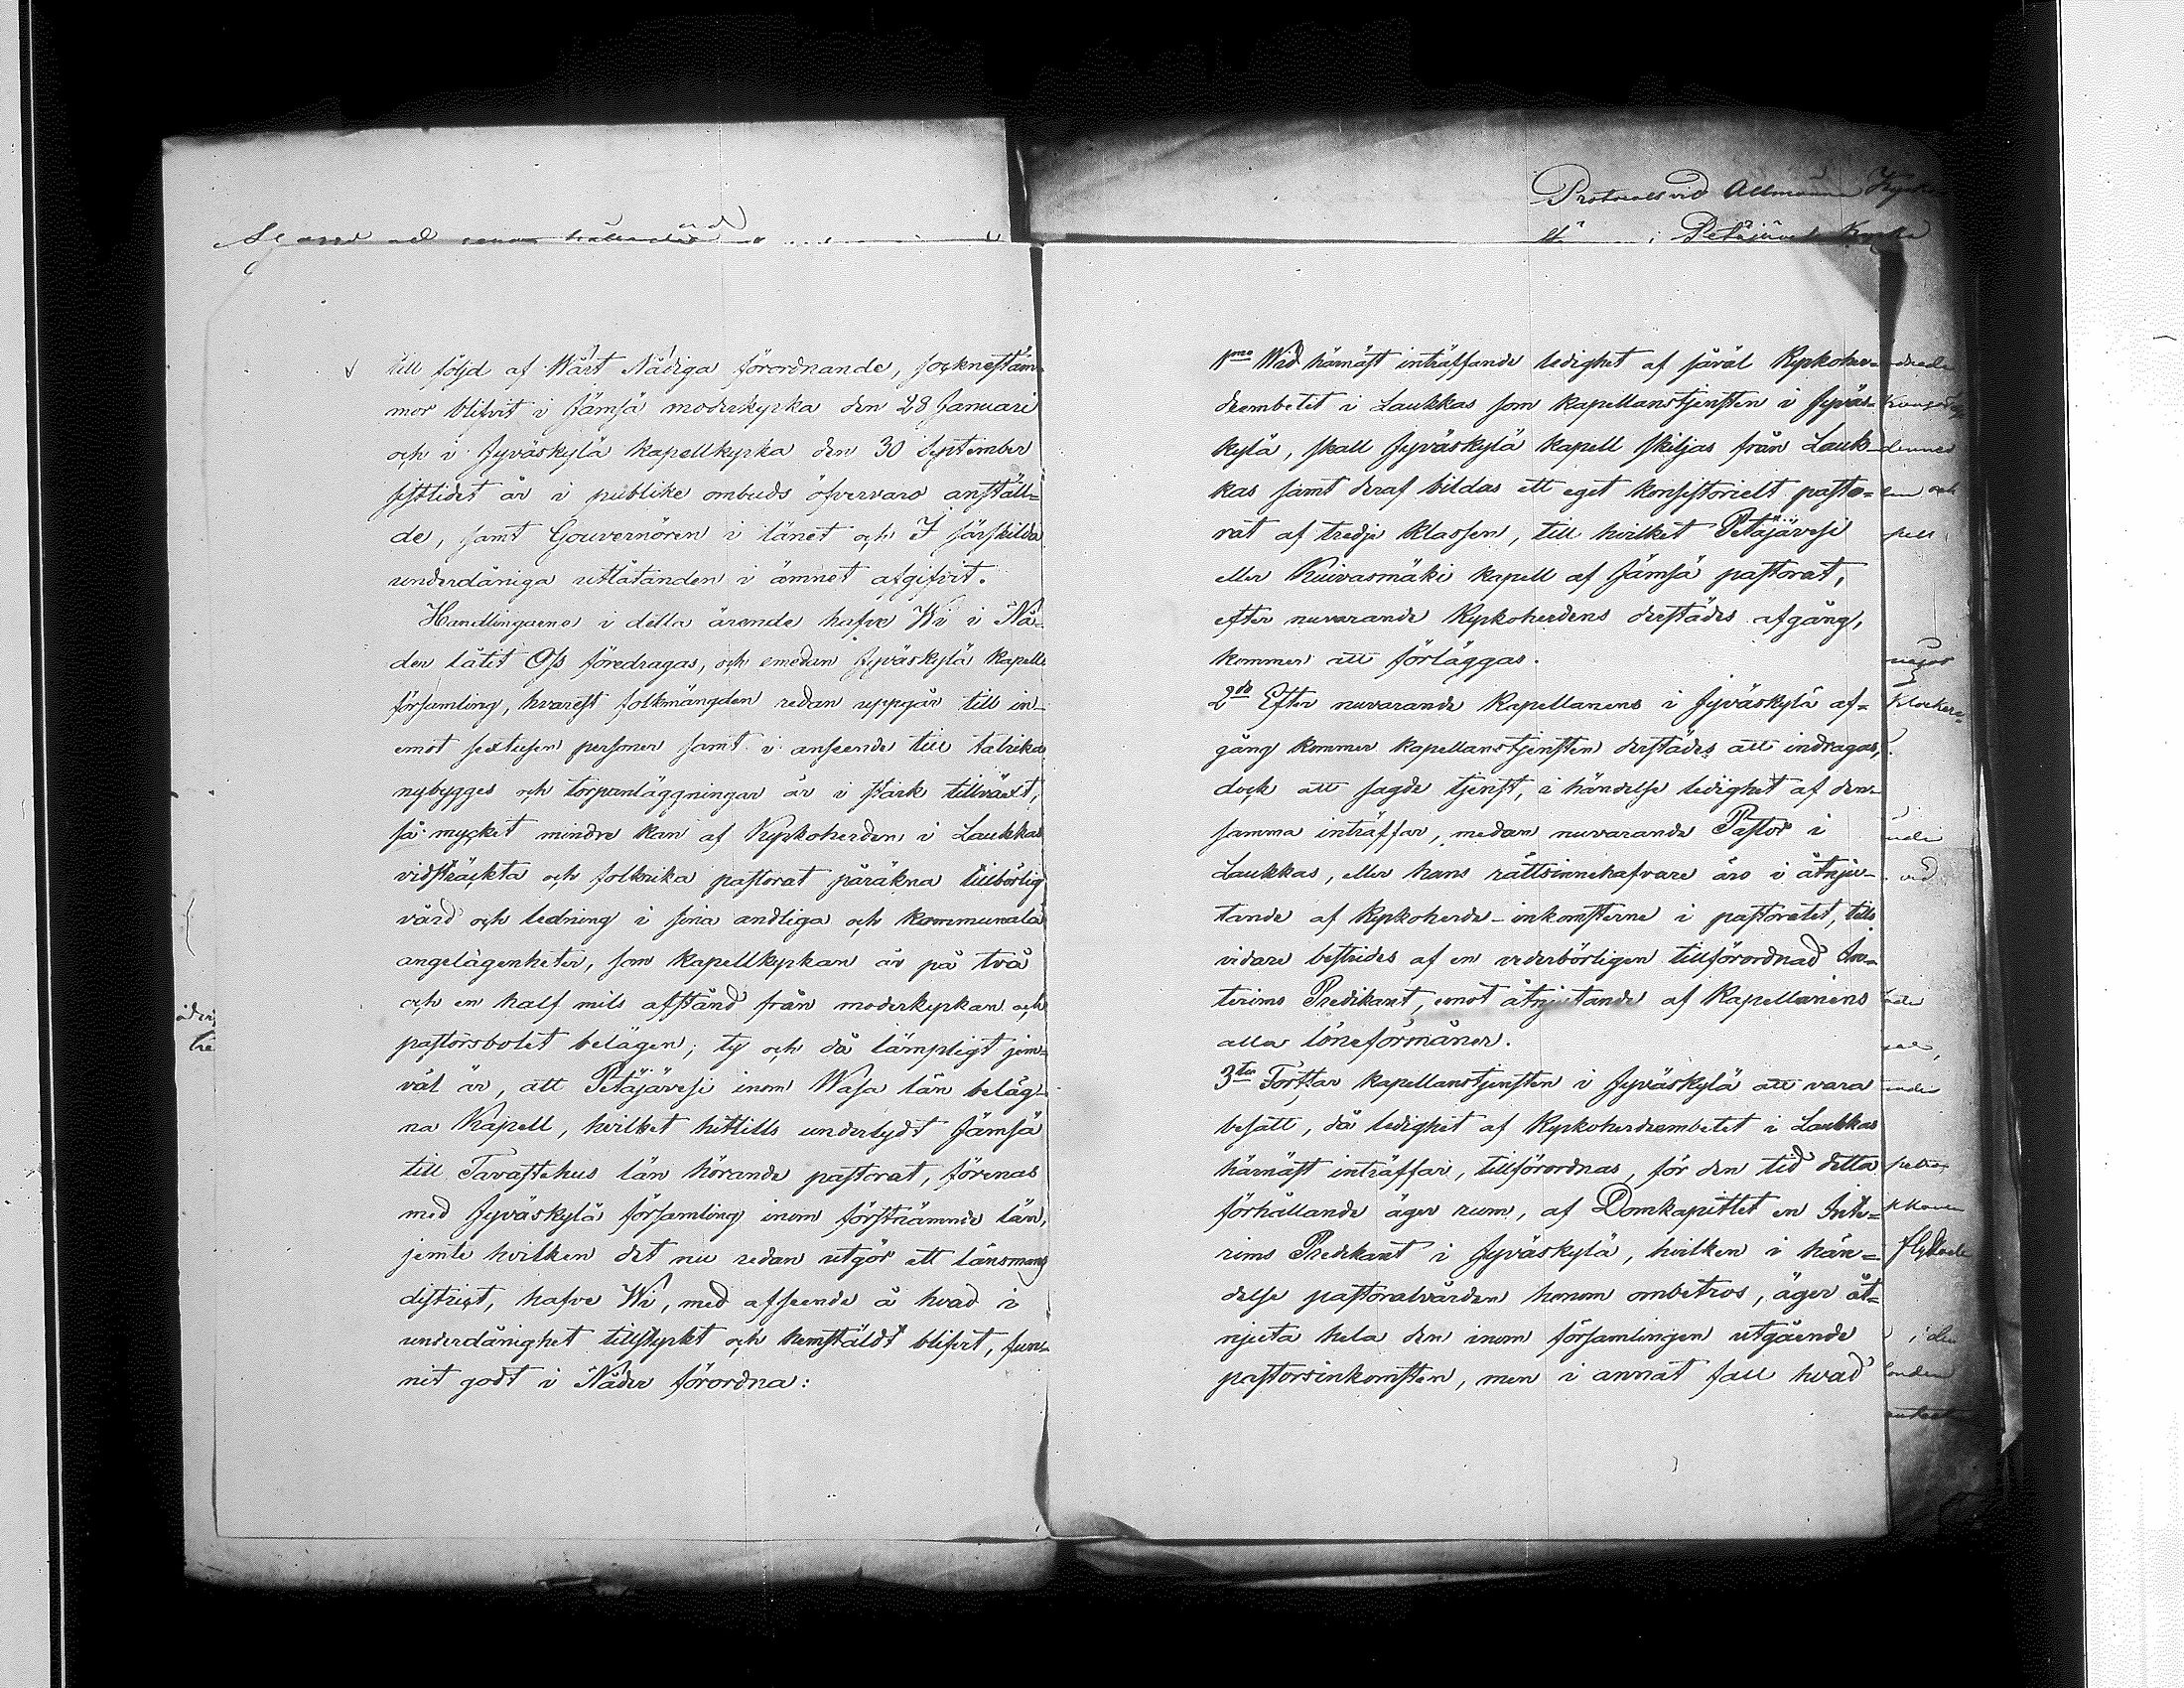 till följd af Wårt Nådiga förordnande, sockneståm-
mor blifvit i Jämsä moderkyrka den 28 Januari
och i Jyväskylä kapellkyrka den 30 September
sistlidet år i publike ombuds öfvervaro anställ=
de, samt Gouvernören i länet och I särskilda
underdåniga utlåtanden i ämnet afgifvit.
Handlingarne i detta ärende hafve Wi i Nå-
der låtit Oss föredragas, och emedan Jyväskylä kapell
församling, hvarest folkmängden redan uppgår till in-
emot sextusen personer samt i anseende till talrika
nybygges och torpanläggningar är i stark tillväxt,
så mycket mindre kan af Kyrkoherden i Laukkas
vidsträckta och folkrika pastorat påräkna tillbörlig
vård och ledning i sina andliga och kommunala
angelägenheter, som kapellkyrkan är på två
och en half mils afstånd från moderkyrkan och
pastorsbolet belägen; ty och då lämpligt jem-
väl är, att Petäjävesi inom Wasa län beläg-
na Kapell, hvilket hittills underlydt Jämsä
till Tavastehus län hörande pastorat, förenas
med Jyväskylä församling inom förstnämnde län,
jemte hvilken det nu redan utgör ett länsmans
district, hafve Wi, med afseende å hvad i
underdånighet tillstyrkt och hemstäldt blifvit, fun-
nit godt i Nåder förordna:
Protocoll vid Allmänna
i Petäjävesi Kyrka
1mo Wid härnäst inträffande ledighet af såväl Kyrkoher-
deembetet i Laukkas som kapellanstjensten i Jyväs-
kylä, skall Jyväskylä kapell skiljas från Lauk-
kas samt deraf bildas ett eget konsistorielt pasto-
rat af tredje klassen, till hvilket Petäjävesi
eller Kuivasmäki kapell af Jämsä pastorat,
efter nuvarande Kyrkoherdens derstädes afgång,
kommer att förläggas.
2do Efter nuvarande Kapellanens i Jyväskylä af=
gång kommer kapellanstjensten derstädes att indragas,
dock att sagde tjenst, i händelse ledighet af den-
samma inträffar, medan nuvarande Pastor i
Laukkas, eller hans rättsinnehafvare äro i åtnju-
tande af Kyrkoherde-inkomsterne i pastoratet, tills
vidare bestrides af en vederbörligen tillförordnad In-
terims Predikant, emot åtnjutande af Kapellanens
alla löneförmåner.
3tio Torftar kapellanstjensten i Jyväskylä att vara
besatt, då ledighet af Kyrkoherdeembetet i Laukkas
härnäst inträffar, tillförordnas, för den tid detta
förhållande äger rum, af Domkapitlet en Inte=
rims Predikant i Jyväskylä, hvilken i hän=
delse pastoralvården honom ombetros, äger åt=
njuta hela den inom församlingen utgående
pastorsinkomsten, men i annat fall hvad